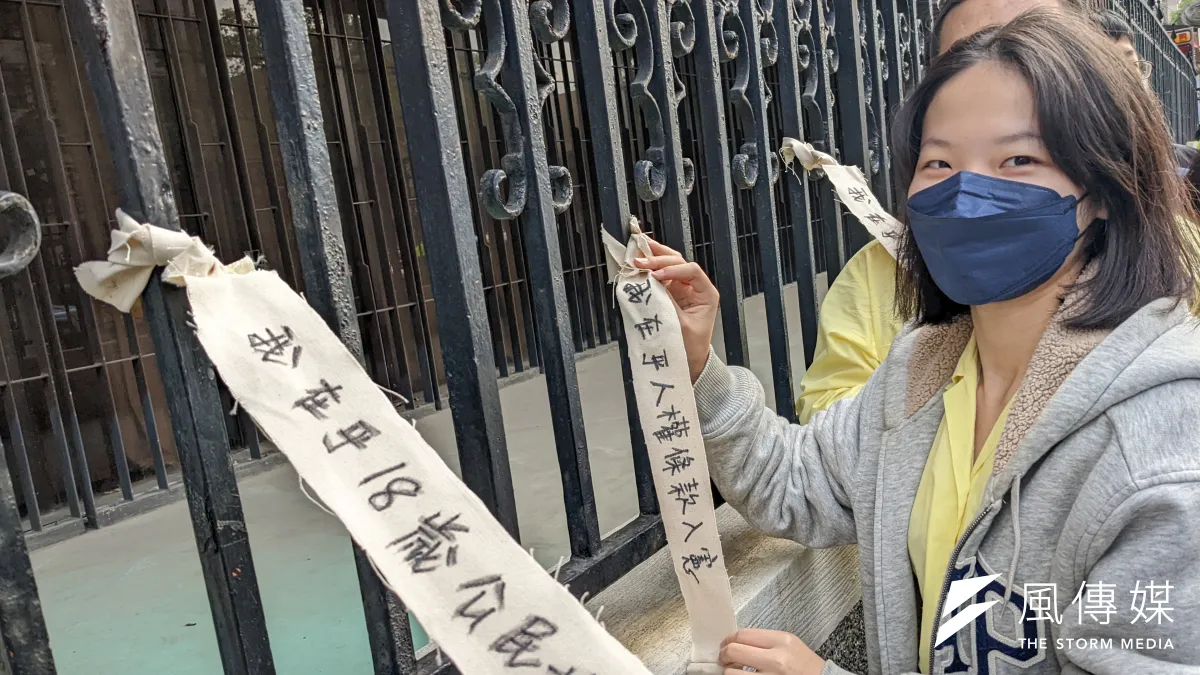 我在乎18歲公民
我在乎人權條款入憲
我在乎
風傳媒
THE STORM MEDIA